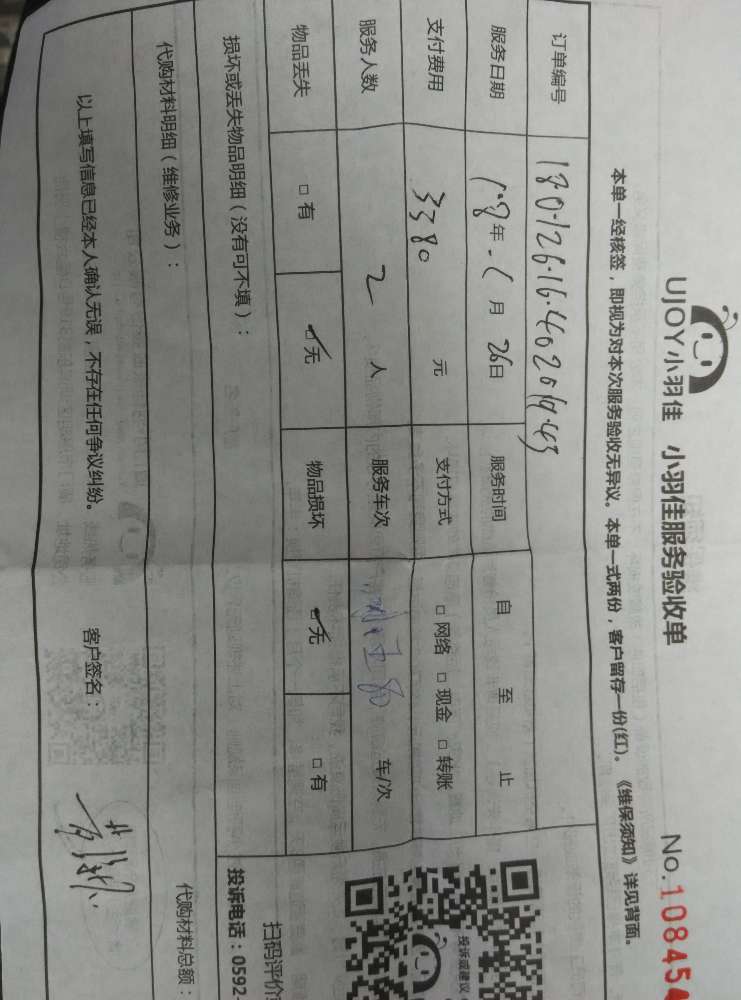 UJOY小羽佳 小羽佳服务验收单 No.108454
本单一经核签，即视为对本次服务验收无异议。本单一式两份，客户留存一份(红)。《维保须知》详见背面。
订单编号
服务日期 18年·1月26日 服务时间 自 至 止
支付费用 3380 元 支付方式 □网络 □现金 □转账
服务人数 2 人 服务车次 车/次
物品丢失 □有 ☑无 物品损坏 ☑无 □有
损坏或丢失物品明细（没有可不填）：
代购材料明细（维修业务）： 代购材料总额：
以上填写信息已经本人确认无误，不存在任何争议纠纷。 客户签名：
投诉或建议
扫码评价
投诉电话：0592